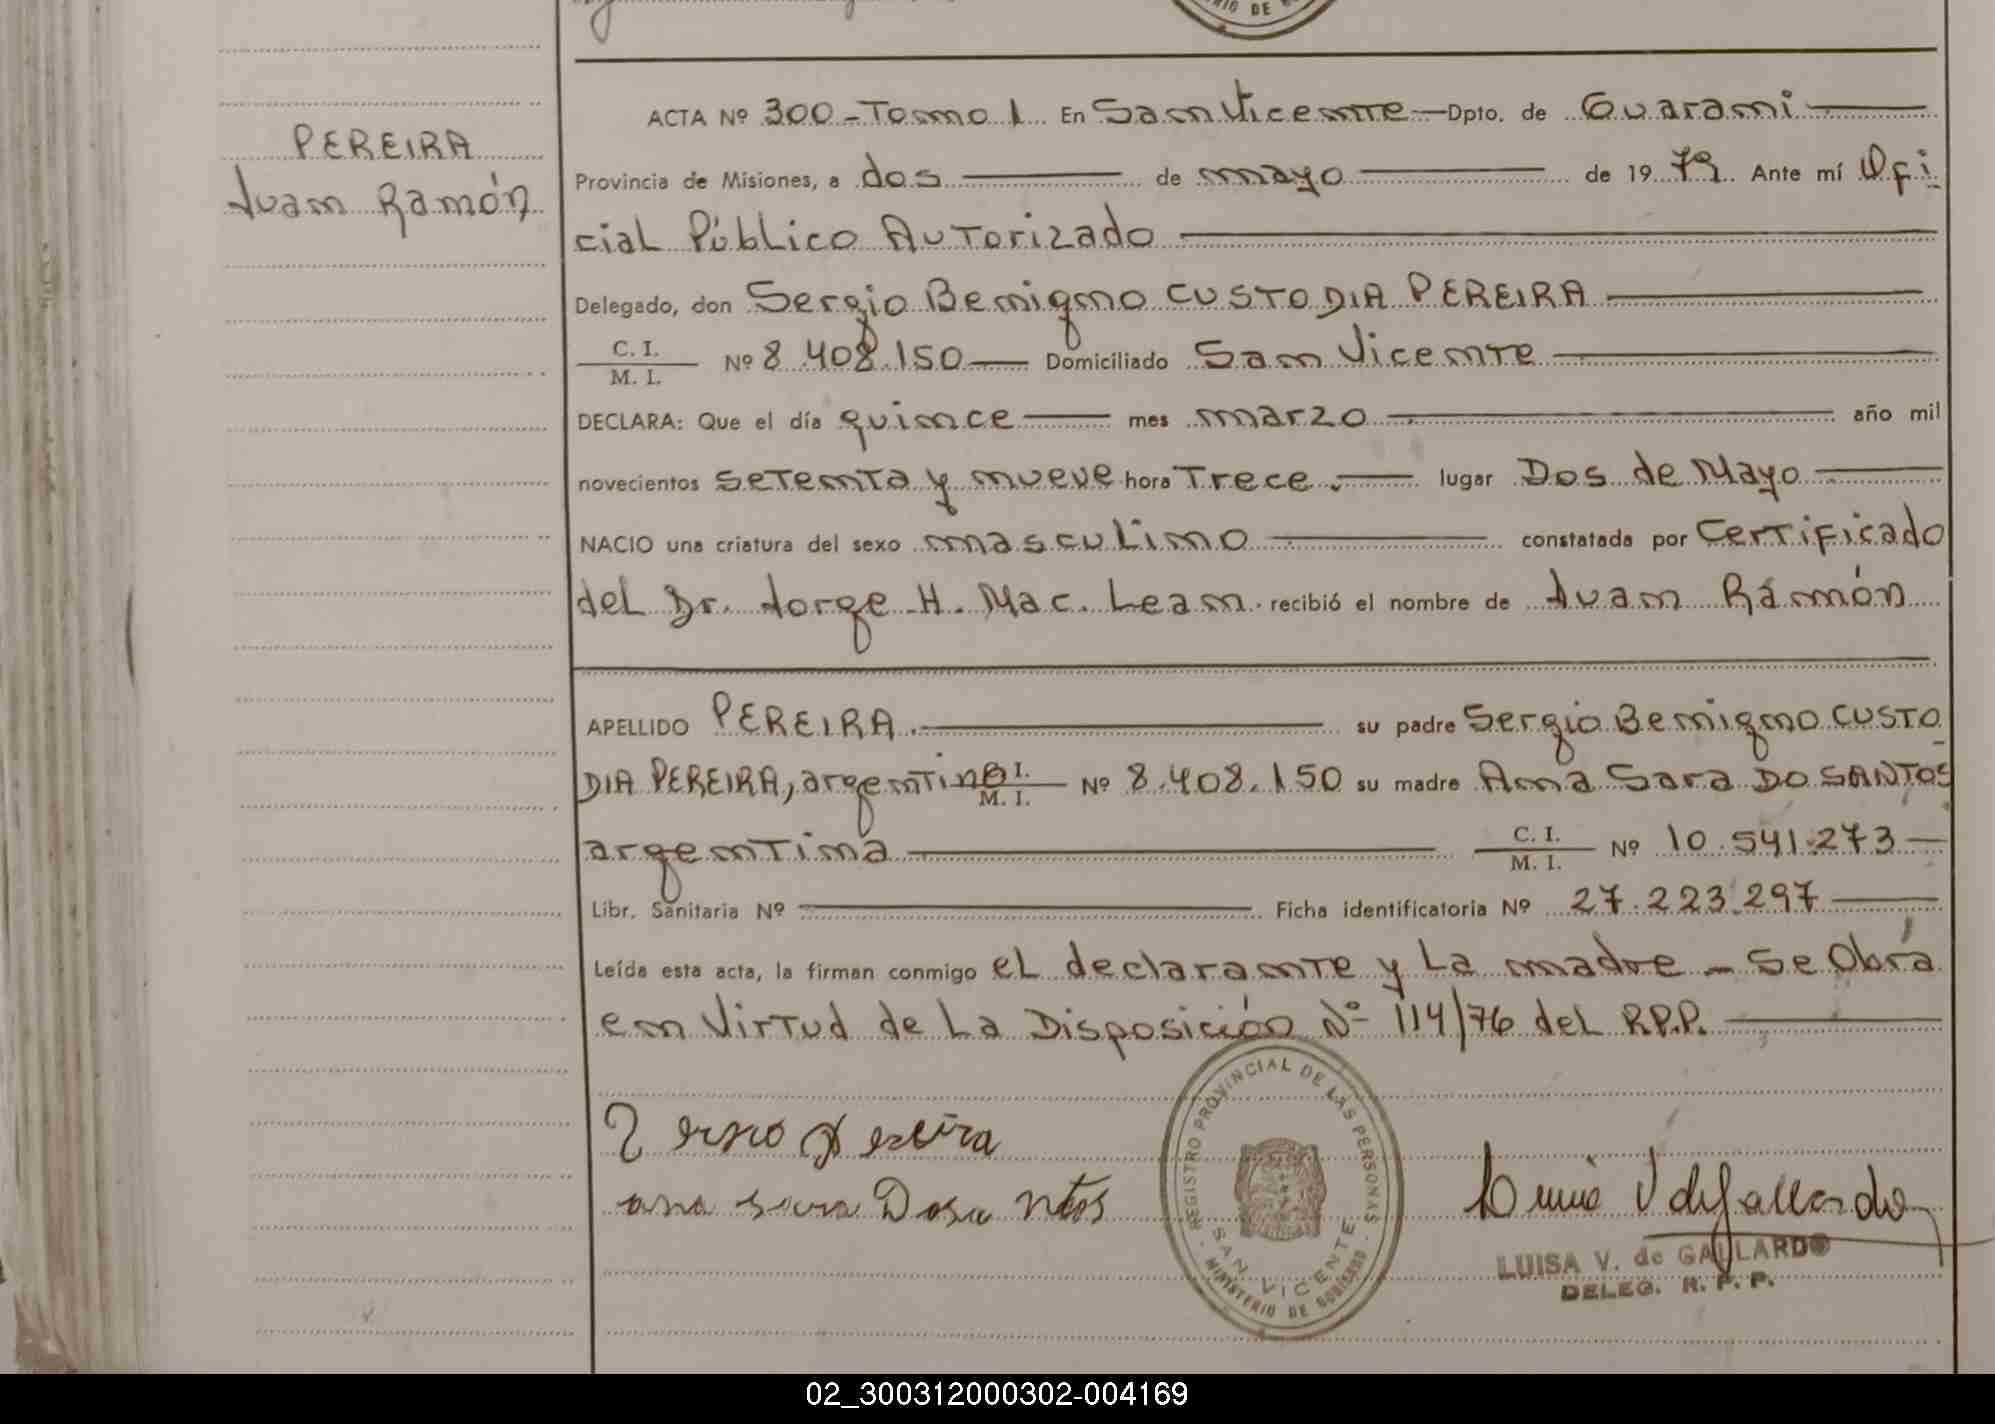 PEREIRA
Juan Ramón
ACTA Nº 300 - Tomo 1 En San Vicente — Dpto. de Guarani
Provincia de Misiones, a dos de mayo de 1979 Ante mí Ofi
cial Público Autorizado
Delegado, don Sergio Benigno CUSTODIA PEREIRA
C. I.
M. I. Nº 8.408.150 — Domiciliado San Vicente
DECLARA: Que el día quince mes marzo año mil
novecientos setenta y nueve hora Trece. lugar Dos de Mayo
NACIO una criatura del sexo masculino constatada por Certificado
del Dr. Jorge H. Mac. Lean. recibió el nombre de Juan Ramón
APELLIDO PEREIRA. su padre Sergio Benigno CUSTO
DIA PEREIRA, argentino I.
M. I. Nº 8.408.150 su madre Ana Sara DO SANTOS
argentina C. I.
M. I. Nº 10.541.273 —
Libr. Sanitaria Nº Ficha identificatoria Nº 27.223.297
Leída esta acta, la firman conmigo el declarante y la madre - Se Obra
en Virtud de la Disposición Nº 114/76 del R.P.P.
Pereira
ana sara Dosa ntos
REGISTRO PROVINCIAL DE LAS PERSONAS
SAN VICENTE
MINISTERIO DE GOBIERNO
Luisa V de Gallardo
LUISA V. de GALLARDO
DELEG. R. P. P.
02_300312000302-004169